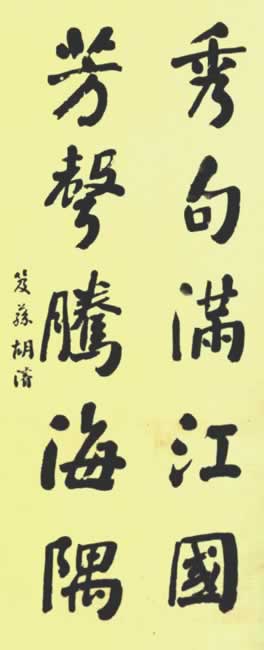 秀句滿江國
芳聲騰海隅
蓀胡